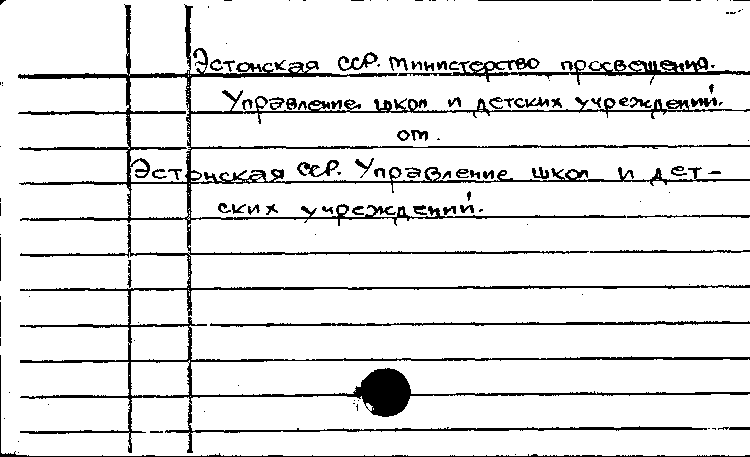 Эстонская ССР. Министерство просвещения.
Управление школ и детских учреждений.
от.
Эстонская ССР. Управление школ и дет-
ских учреждений.